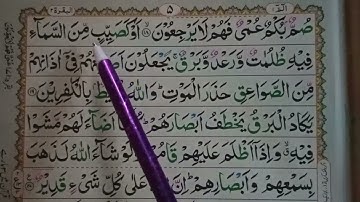 البقرة ٢ ٥ الٓمّٓ ١
صُمٌّۢ بُكْمٌ عُمْيٌ فَهُمْ لَا يَرْجِعُوْنَ ﴿۱۸﴾ اَوْ كَصَيِّبٍ مِّنَ السَّمَآءِ
فِيْهِ ظُلُمٰتٌ وَّرَعْدٌ وَّبَرْقٌ ۚ يَجْعَلُوْنَ فِيْۤ اٰذَانِهِمْ
مِّنَ الصَّوَاعِقِ حَذَرَ الْمَوْتِ ؕ وَاللّٰهُ بِالْكٰفِرِيْنَ ﴿۱۹﴾
يَكَادُ الْبَرْقُ يَخْطَفُ اَبْصَارَهُمْ اَضَآءَ لَهُمْ مَّشَوْا
فِيْهِ ۙ وَاِذَاۤ اَظْلَمَ عَلَيْهِمْ قَامُوْا وَلَوْ شَآءَ اللّٰهُ لَذَهَبَ
بِسَمْعِهِمْ وَاَبْصَارِهِمْ ؕ اِنَّ عَلٰى كُلِّ شَيْءٍ قَدِيْرٌ ﴿۲۰﴾